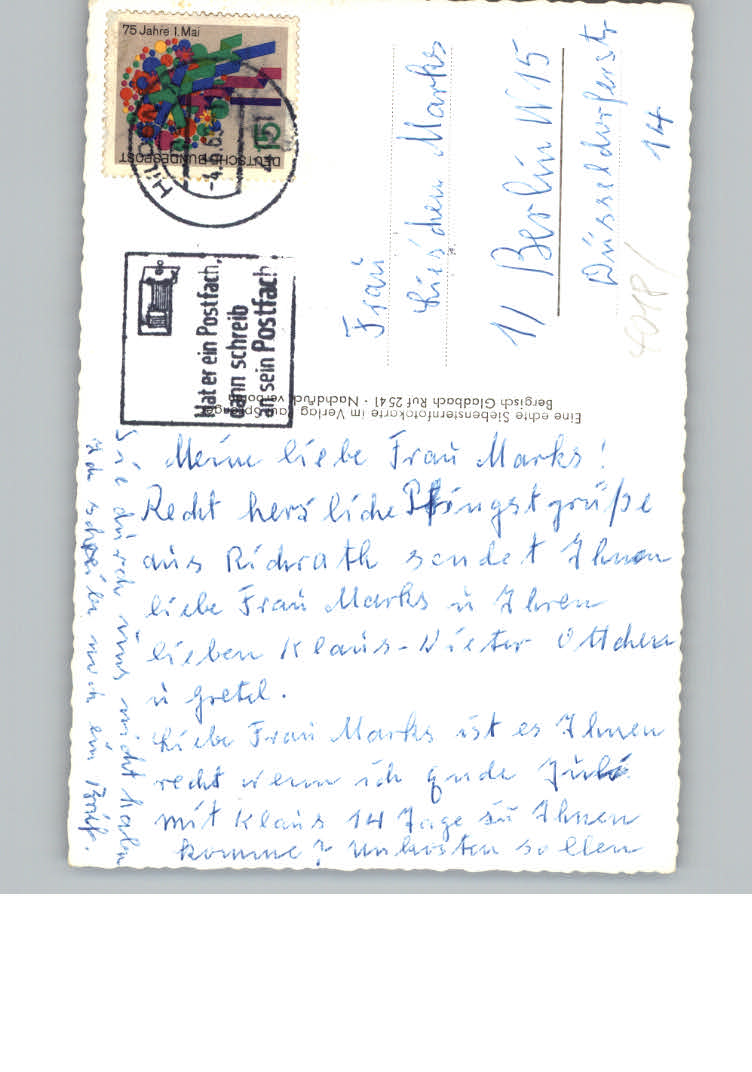 75 Jahre 1. Mai
15
DEUTSCHE BUNDESPOST
Hat er ein Postfach,
dann schreib
an sein Postfach
Frau
Lieschen Marks
1/ Berlin W 15
Düsseldorferstr
14
4018/
Eine echte Siebensternfotokarte im Verlag
Bergisch Gladbach Ruf 2541 · Nachdruck verboten
Meine liebe Frau Marks!
Recht herzliche Pfingstgrüße
aus Richrath sendet Ihnen
liebe Frau Marks u Ihren
lieben Klaus-Dieter Ottchen
u Gretel.
Liebe Frau Marks ist es Ihnen
recht wenn ich ende Juli
mit Klaus 14 Tage zu Ihnen
komme? Unkosten sollen
Sie durch uns nicht haben
Ich schreibe noch ein Brief.